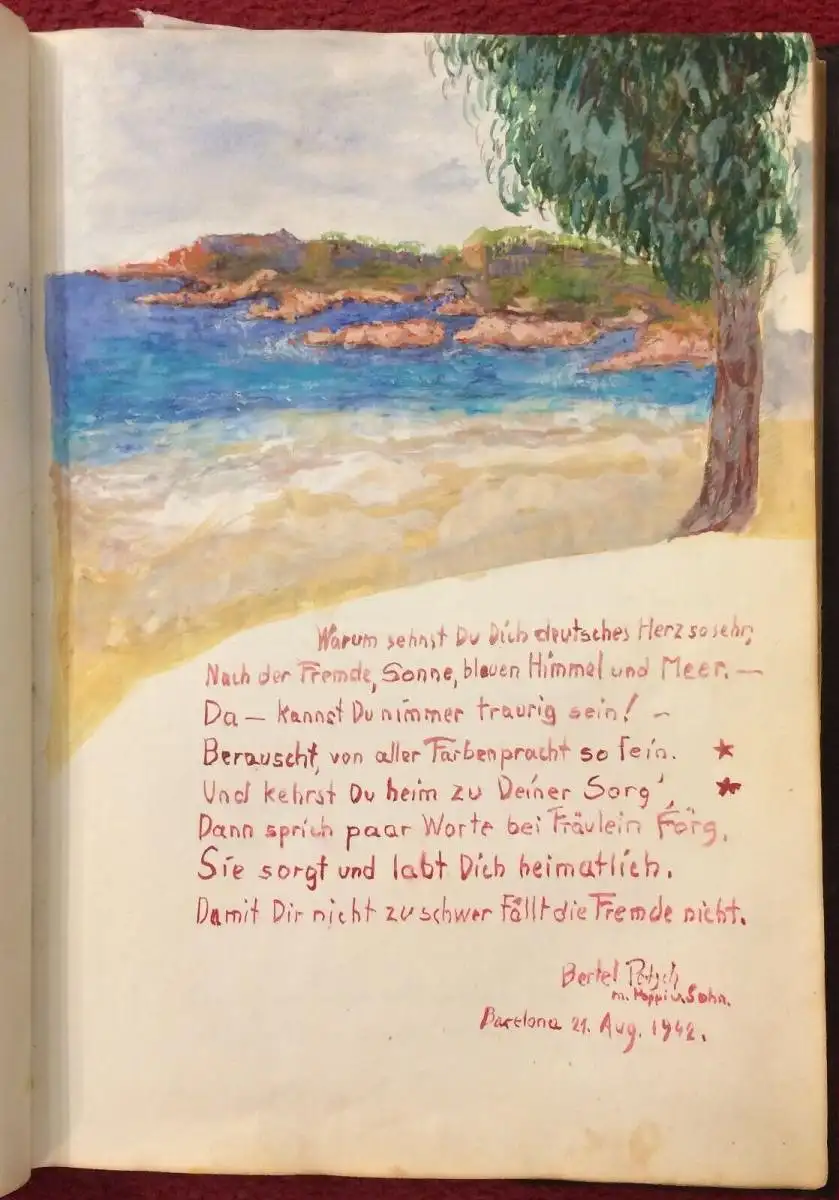 Warum sehnst Du Dich deutsches Herz so sehr,
Nach der Fremde, Sonne, blauen Himmel und Meer. —
Da — kannst Du nimmer traurig sein! —
Berauscht, von aller Farbenpracht so fein.
Und kehrst Du heim zu Deiner Sorg',
Dann sprich paar Worte bei Fräulein Förg.
Sie sorgt und labt Dich heimatlich.
Damit Dir nicht zu schwer fällt die Fremde nicht.
Bertel
m. Poppi u. Sohn.
Barclona 21. Aug. 1942.